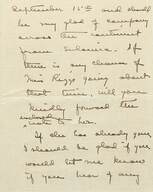 September 15th and should
be very glad of company
across the continent
from Sedalia. If
there is any chance of
Miss Riggs going about
that time, will you
kindly forward the
enclosed note to her.
If she has already gone
I should be glad if you
would let me know
if you hear of any